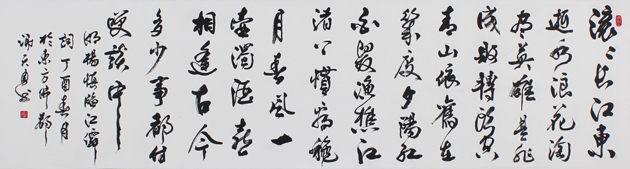 滚滚长江东
逝水浪花淘
尽英雄是非
成败转头空
青山依旧在
几度夕阳红
白发渔樵江
渚上惯看秋
月春风一
壶浊酒喜
相逢古今
多少事都付
笑谈中
明杨慎临江仙
词丁酉春月
于东方